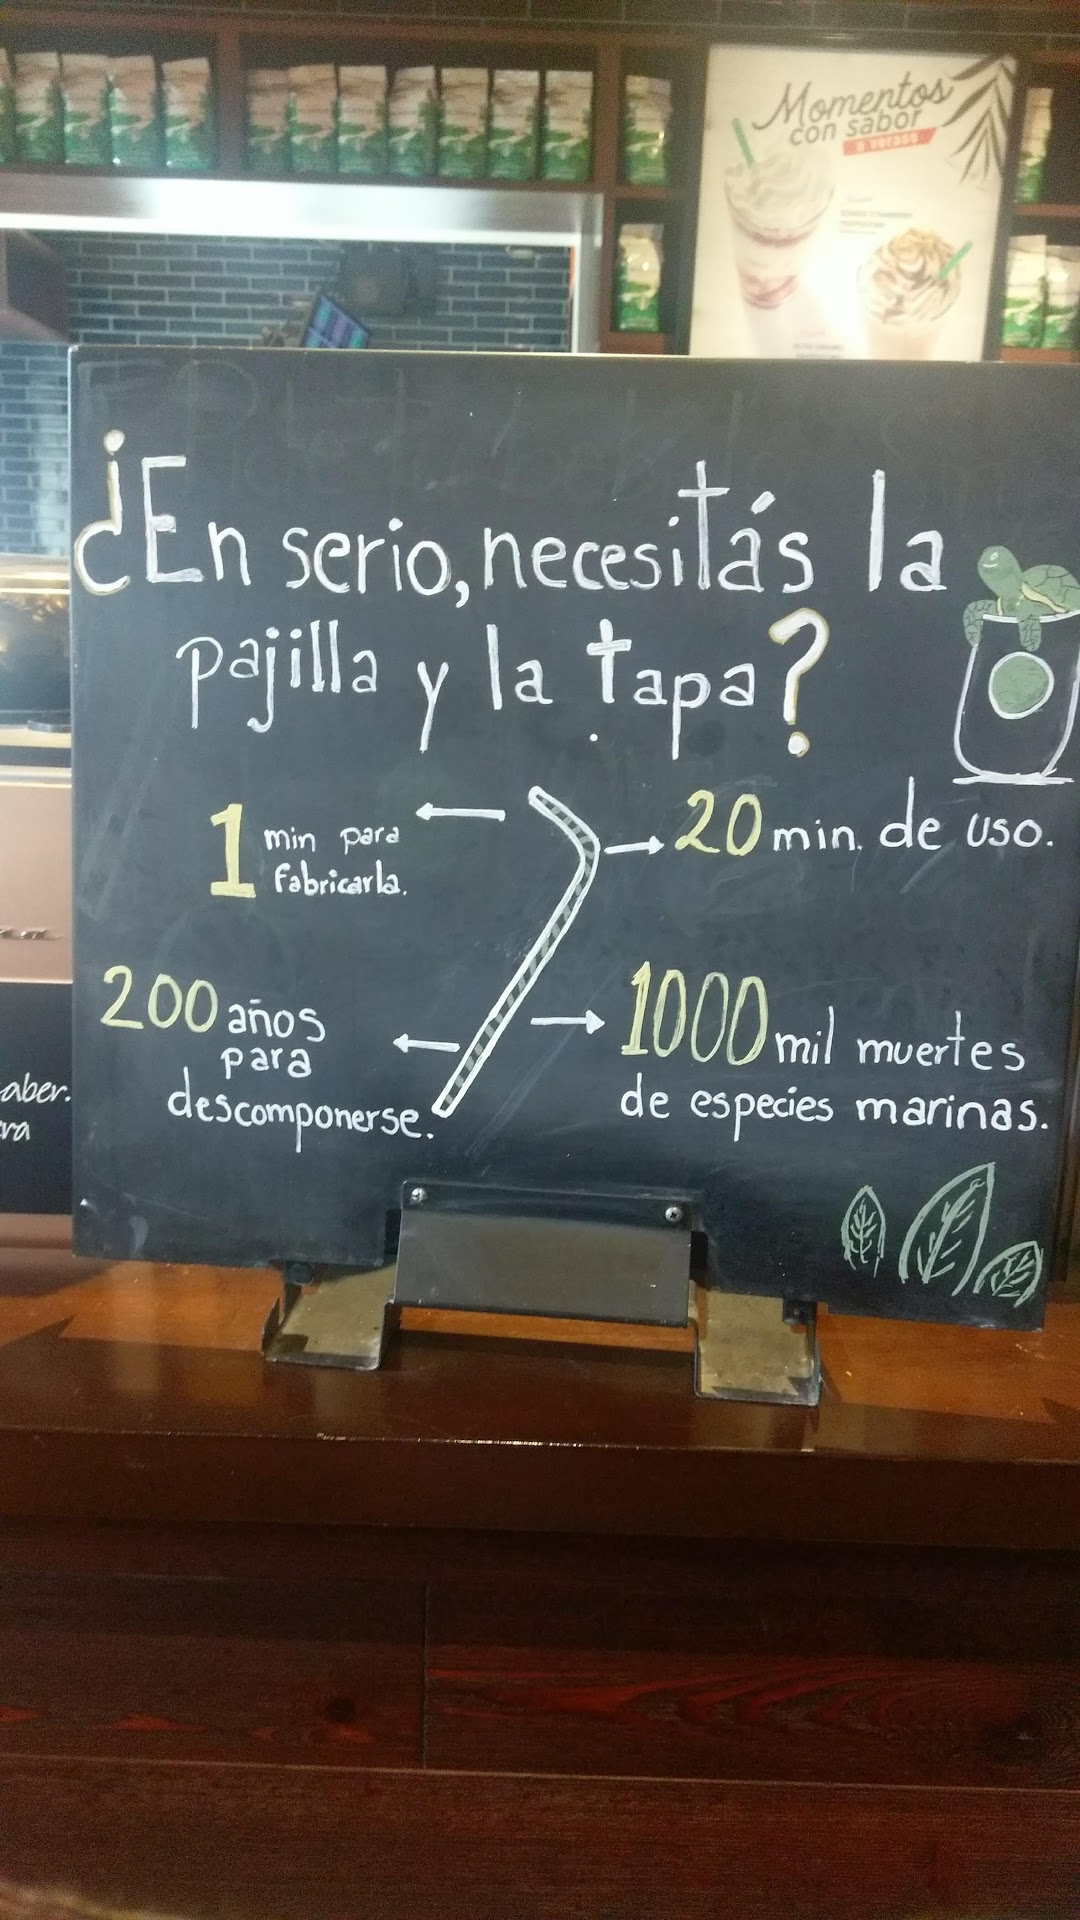 Momentos
con sabor
a verano
¿En serio, necesitás la
pajilla y la tapa?
1 min para
fabricarla.
20 min. de uso.
200 años
para
descomponerse.
1000 mil muertes
de especies marinas.
aber.
ra